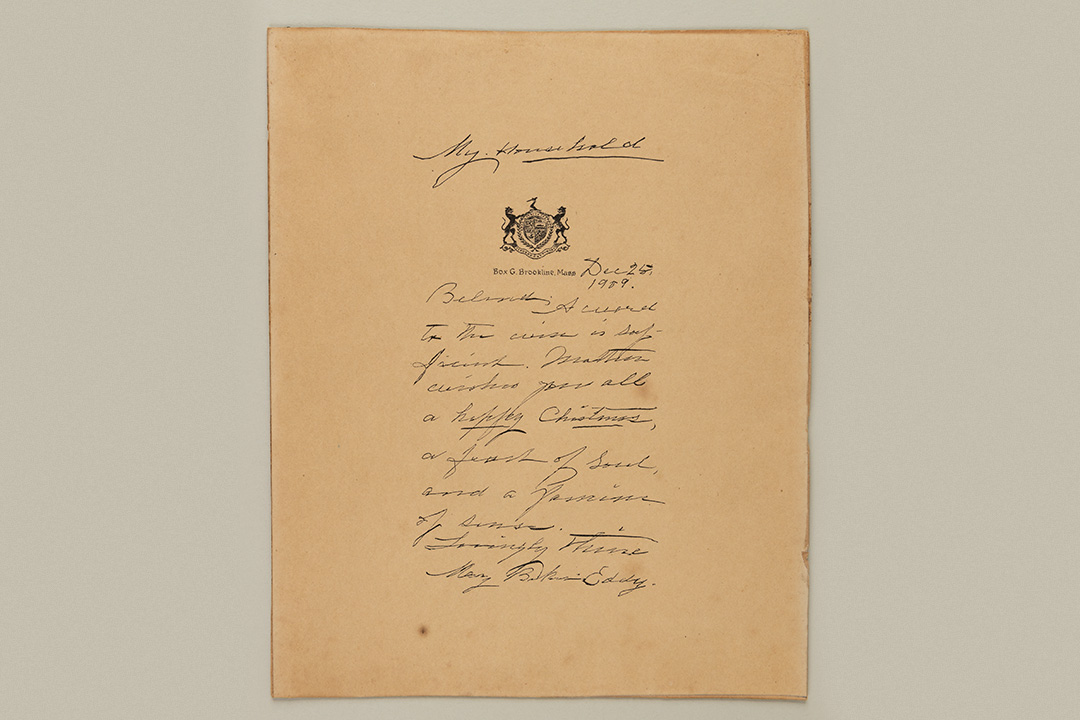 My. Household
Box G. Brookline, Mass
Dec 25,
1909.
Beloved: A word
to the wise is suf-
ficient. Mother
wishes you all
a happy Christmas,
a feast of Soul,
and a famine
of sense.
Lovingly thine
Mary Baker Eddy.